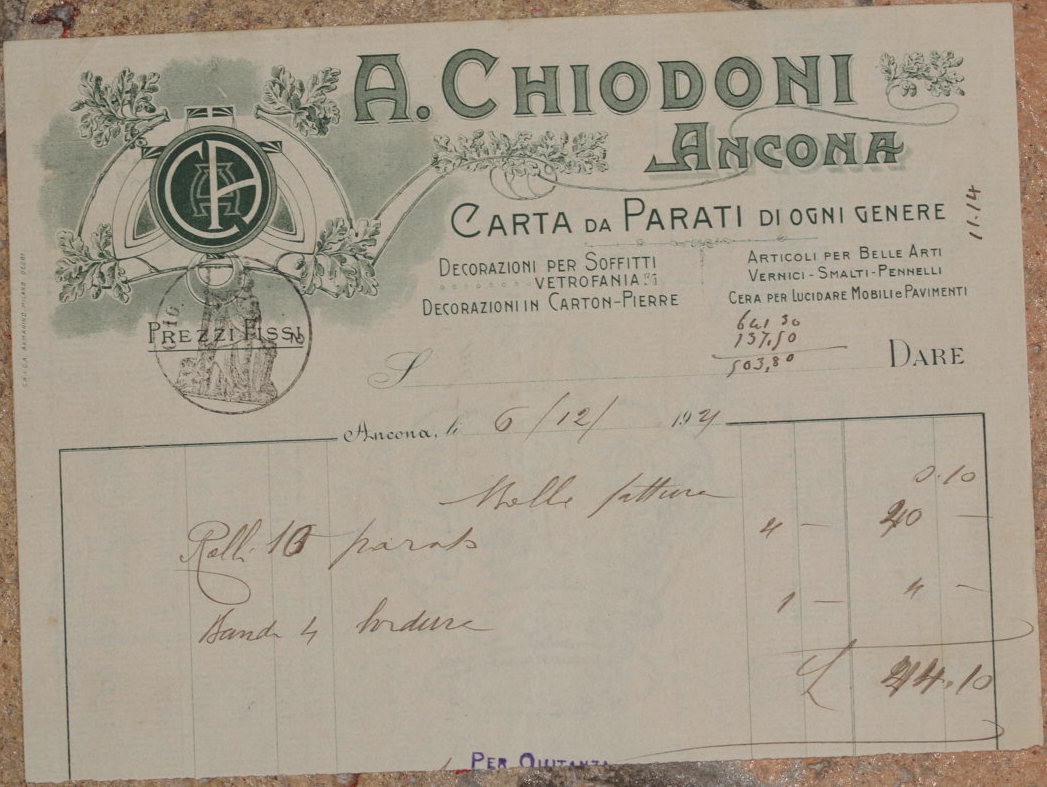 A. CHIODONI
ANCONA
CARTA DA PARATI DI OGNI GENERE
11.14
DECORAZIONI PER SOFFITTI
VETROFANIA
DECORAZIONI IN CARTON-PIERRE
ARTICOLI PER BELLE ARTI
VERNICI-SMALTI-PENNELLI
CERA PER LUCIDARE MOBILI E PAVIMENTI
PREZZI FISSI
137,50
503,80
S
DARE
Ancona, li 6/12/1921
Bollo fattura 0.10
Rolli 10 parati 4 — 40 —
Bande 4 bordura 1 — 4 —
£ 44.10
PER QUITANZA